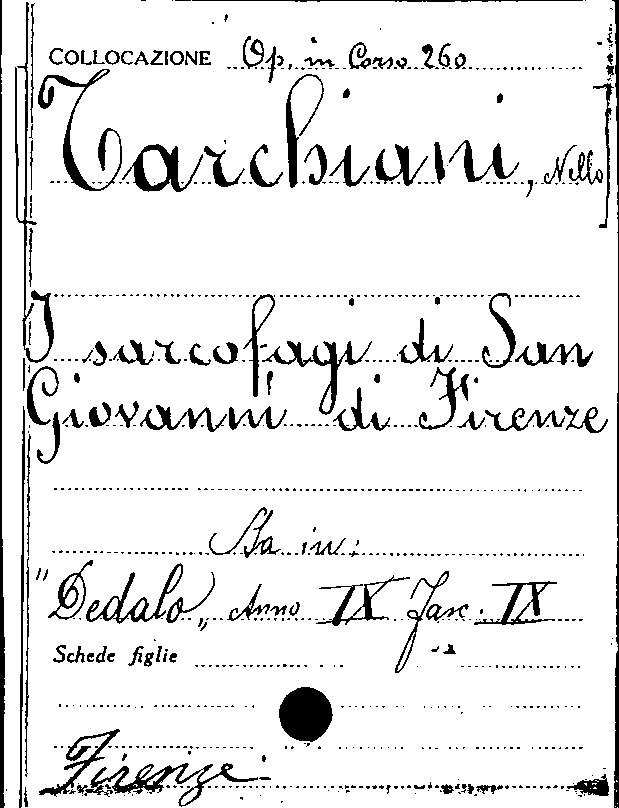 COLLOCAZIONE Op. in Corso 260
Tarchiani, Nello
I sarcofagi di San
Giovanni di Firenze
Sta in:
"Dedalo„ Anno IX Fasc. IX
Schede figlie
Firenze